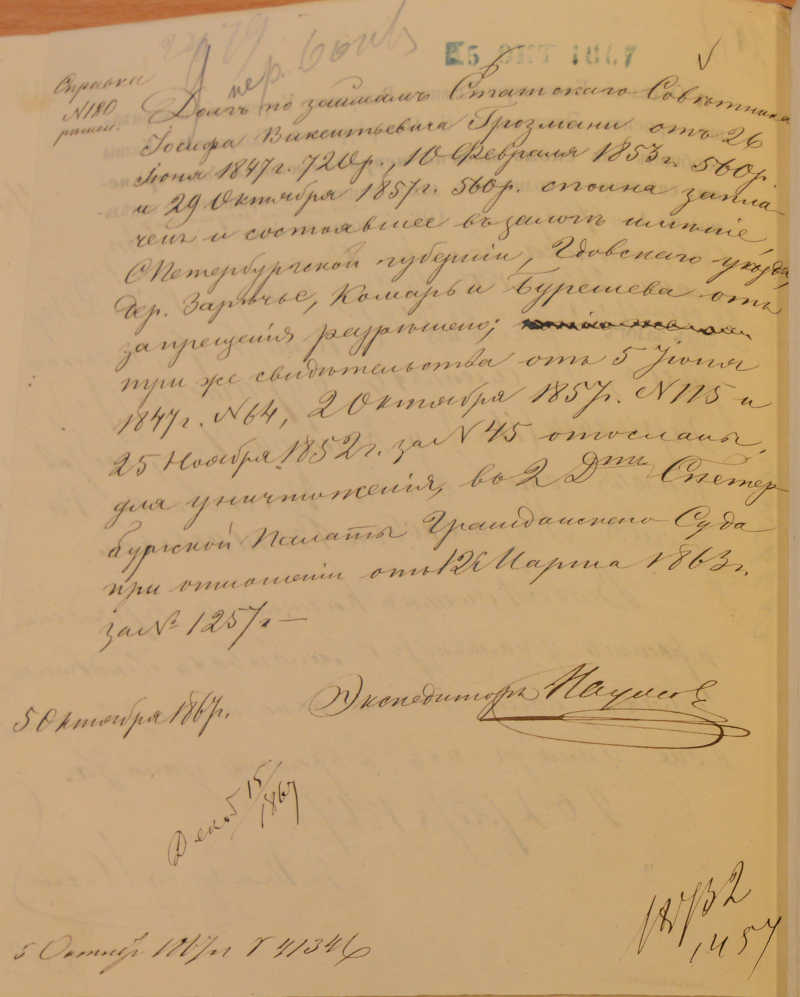 5 ОКТ 1867
Справка
N 180
Долгъ по займамъ Статскаго Совѣтника
Іосифа Викентьевича Грозмани отъ 26
Іюня 1847 г. 720 р., 10 Февраля 1853 г. 560 р.
и 29 Октября 1857 г. 560 р. сполна запла-
ченъ и состоявшее въ залогѣ имѣніе,
СПетербургской губерніи, Гдовскаго уѣзда,
дер. Зарѣчье, Комарь и Бурешева отъ
запрещенія разрѣшено;
три же свидѣтельства отъ 5 Іюня
1847 г. N 64, 2 Октября 1857 г. N 115 и
25 Ноября 1852 г. за N 45 отосланы,
для уничтоженія, въ 2 Д-тъ СПетер-
бургской Палаты Гражданскаго Суда
при отношеніи отъ 12 Марта 1863 г.
за № 1257.—
Экспедиторъ
5 Октября 1867 г.
15/1867
5 Октяб. 1867 г. 41346
1457